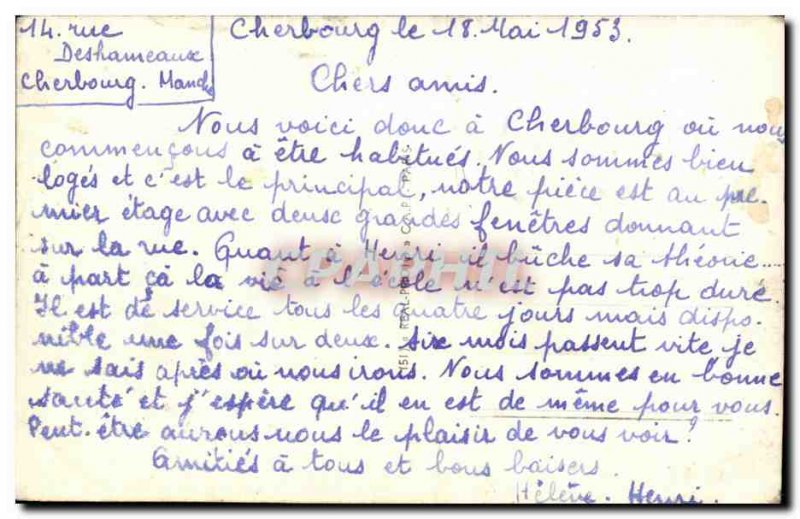 14. rue
Deshameaux
Cherbourg. Manche
Cherbourg le 18. Mai 1953.
Chers amis.
Nous voici donc à Cherbourg où nous
commençons à être habitués. Nous sommes bien
logés et c'est le principal, notre pièce est au pre-
mier étage avec deux grandes fenêtres donnant
sur la rue. Quant à Henri il bûche sa théorie....
à part çà la vie à l'école n'est pas trop dure.
Il est de service tous les quatre jours mais dispo-
nible une fois sur deux. Six mois passent vite je
ne sais après où nous irons. Nous sommes en bonne
santé et j'espère qu'il en est de même pour vous.
Peut-être aurons-nous le plaisir de vous voir?
Amitiés à tous et bons baisers.
Hélène. Henri.
CPAPHIL